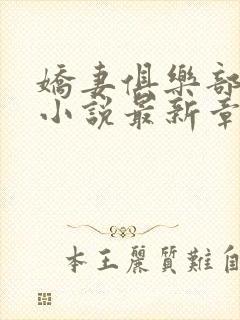 嬌妻俱樂部
小說最新章
本王麗質難自